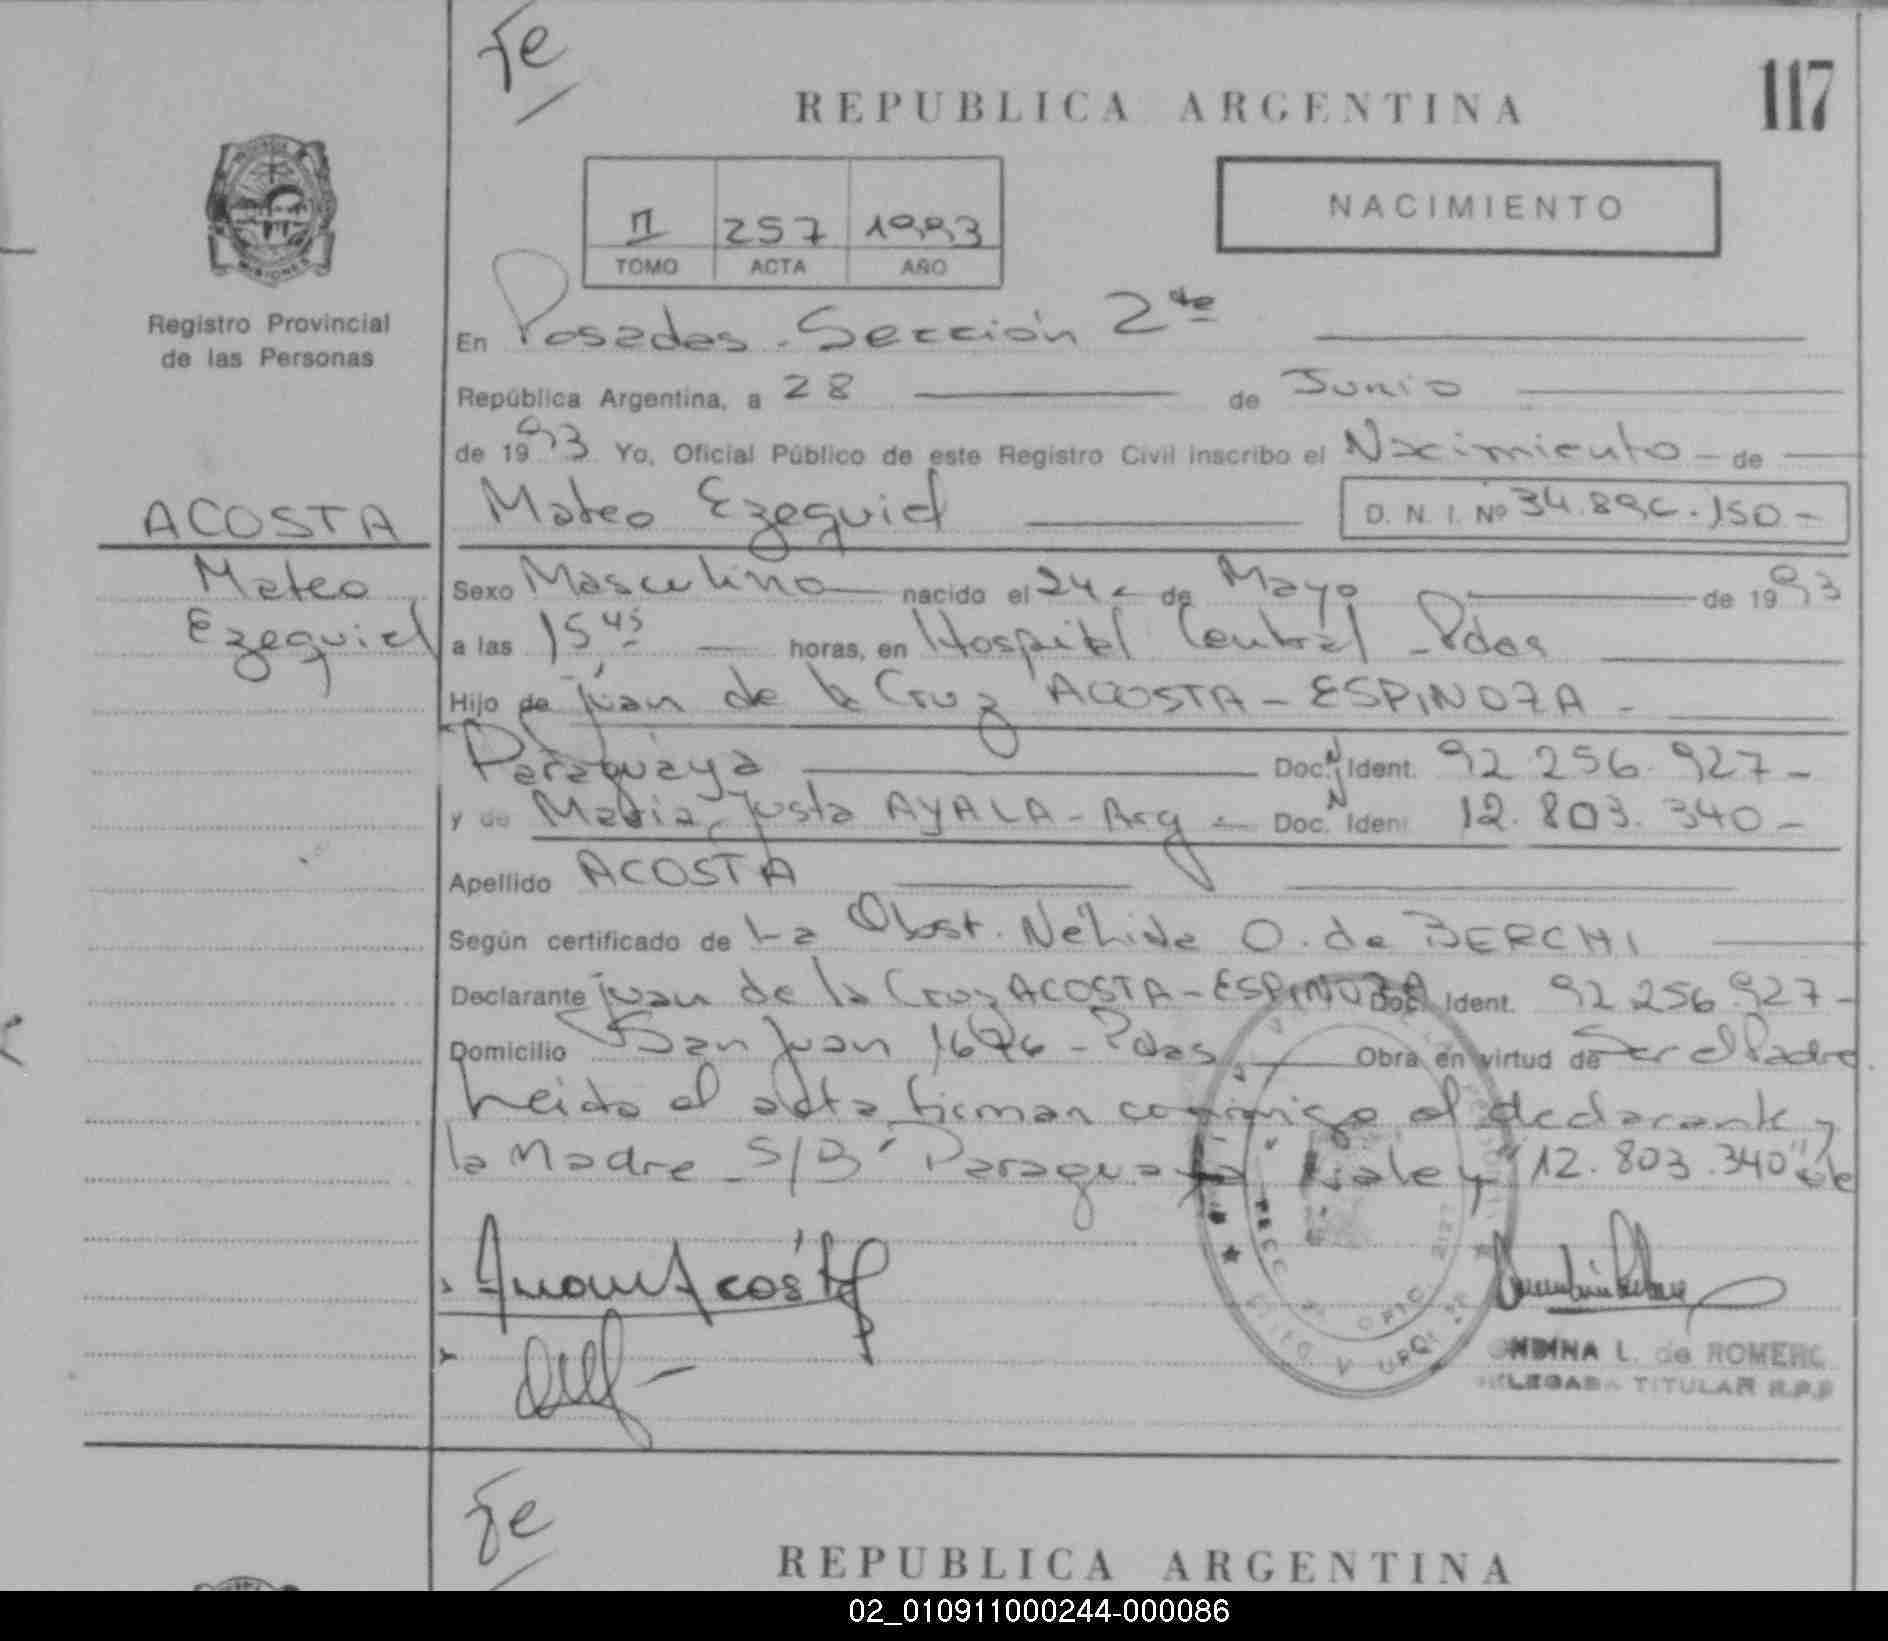 Fe
REPUBLICA ARGENTINA
117
II 257 1993
TOMO ACTA AÑO
NACIMIENTO
MISIONES
Registro Provincial
de las Personas
En Posadas - Sección 2da
República Argentina, a 28 de Junio
de 1993 Yo, Oficial Público de este Registro Civil inscribo el Nacimiento - de
Mateo Ezequiel D. N. I. Nº 34.896.150-
ACOSTA
Mateo
Ezequiel
Sexo Masculino nacido el 24 - de Mayo de 1993
a las 15,45 horas, en Hospital Central - Pdas
Hijo de Juan de la Cruz ACOSTA - ESPINOZA -
Paraguaya Doc. N Ident. 92 256.927-
y de María Justa AYALA - Arg - Doc. N Ident 12.803.340-
Apellido ACOSTA
Según certificado de La Obst. Nélida O. de BERCHI
Declarante Juan de la Cruz ACOSTA - ESPINOZA Doc. Ident. 92 256 927-
Domicilio San Juan - Pdas. Obra en virtud de Ser el Padre
Leido el acta firman conmigo el declarante y
la Madre - S/B "Paraguaya" "12.803.340" Vale
Juan Acosta
ONDINA L. de ROMERO
DELEGADA TITULAR R.P.P
Fe
REPUBLICA ARGENTINA
02_010911000244-000086